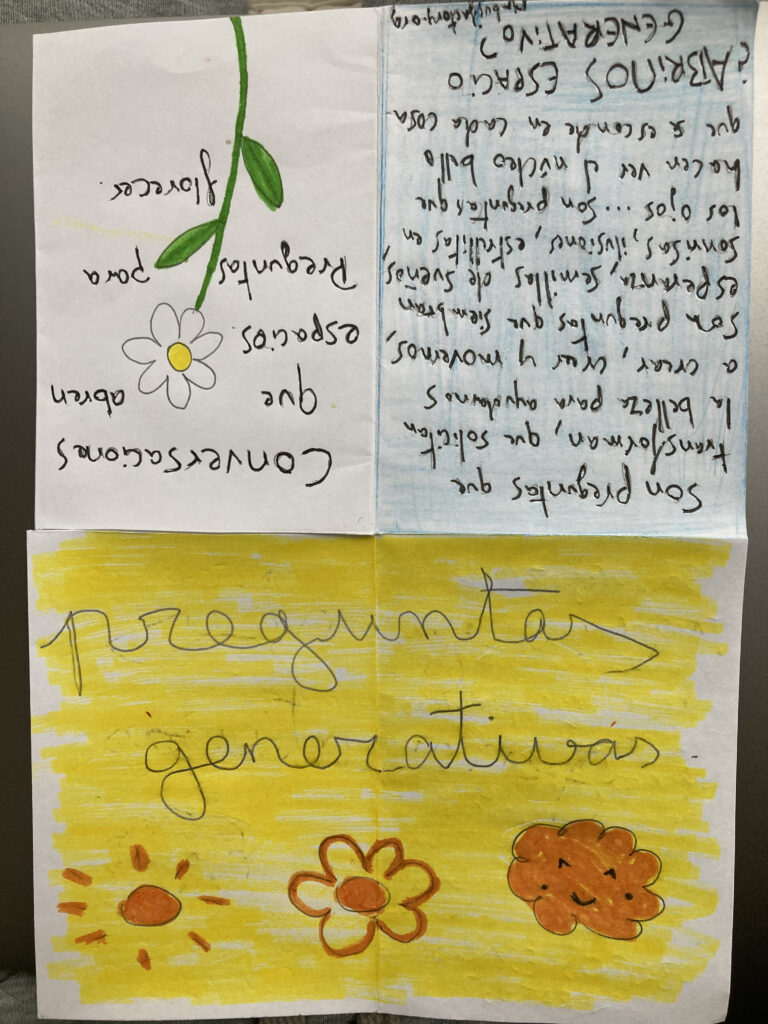 preguntas
generativas
Son preguntas que
transforman, que solicitan
la belleza para ayudarnos
a crear, creer y movernos,
son preguntas que siembran
esperanza, semillas de sueños,
sonrisas, ilusiones, estrellitas en
los ojos ... son preguntas que
hacen ver el núcleo bello
que se esconde en cada cosa
¿ABRIMOS ESPACIO
GENERATIVO?
Conversaciones
que abren
espacios.
Preguntas para
florecer.